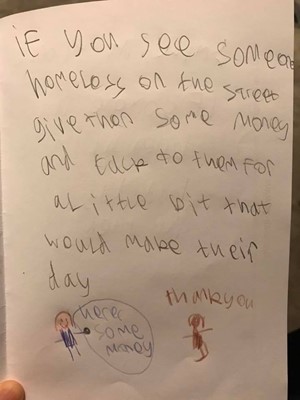 if you see someone
homeless on the street
give then some money
and talk to them for
a little bit that
would make their
day
heres
some
money
thankyou